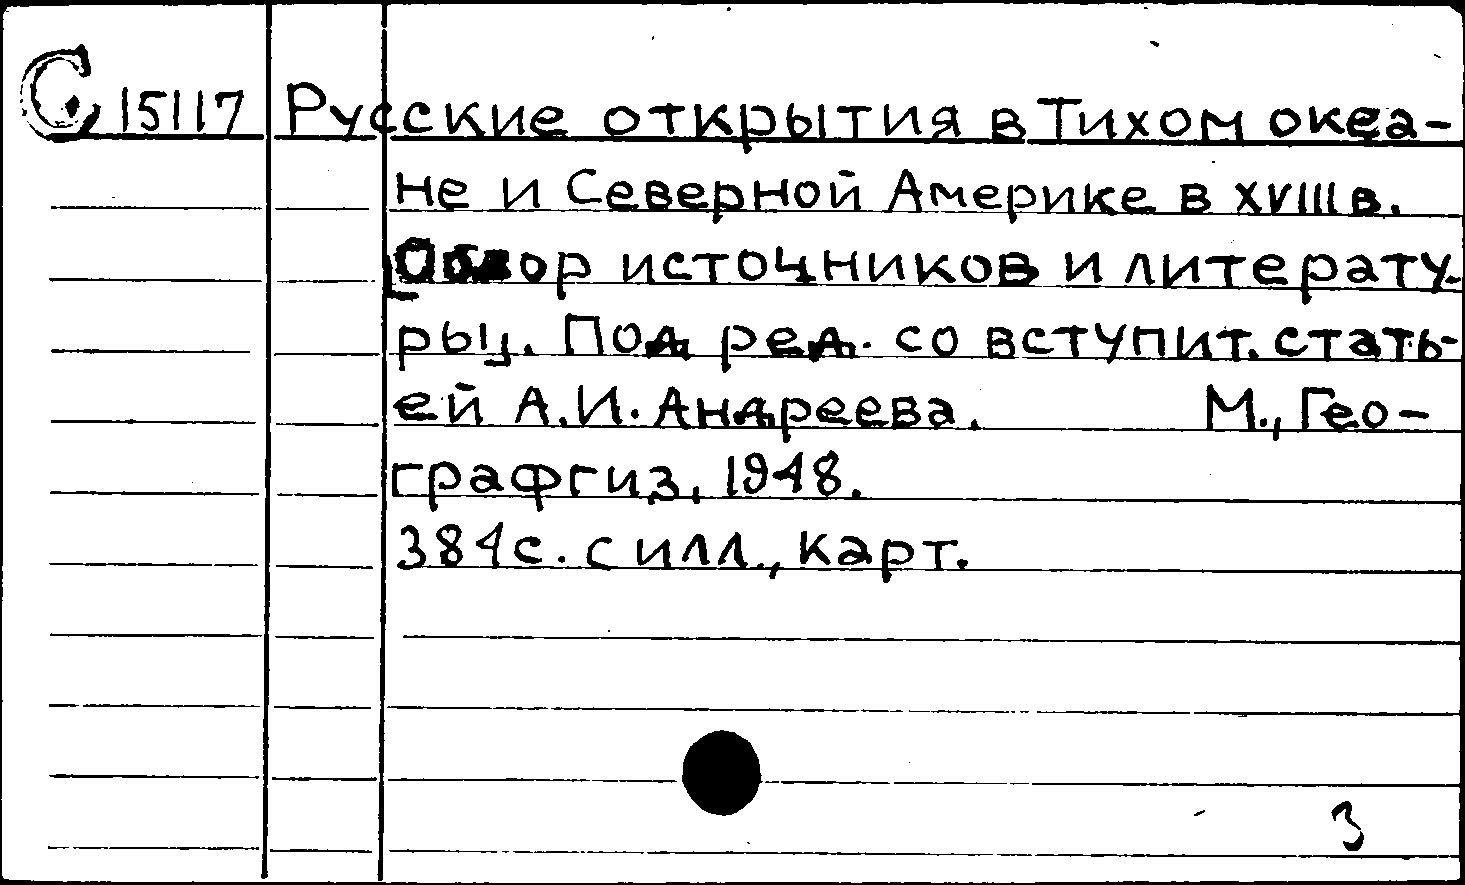 С 15117 Русские открытия в Тихом океа-
не и Северной Америке в XVIII в.
Обзор источников и литерату-
ры. Под ред. со вступит. стать-
ей А.И. Андреева. М., Гео-
графгиз, 1948.
384 с. с илл., карт.
3